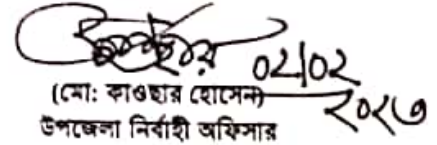 ০২/০২
২০২৩
(মো: কাওছার হোসেন)
উপজেলা নির্বাহী অফিসার